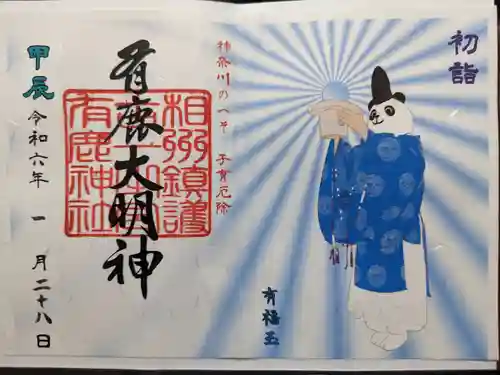 初詣
有福玉
神奈川のへそ 子育厄除
有鹿大明神
相州鎮護
有鹿神社
甲辰
令和六年一月二十八日